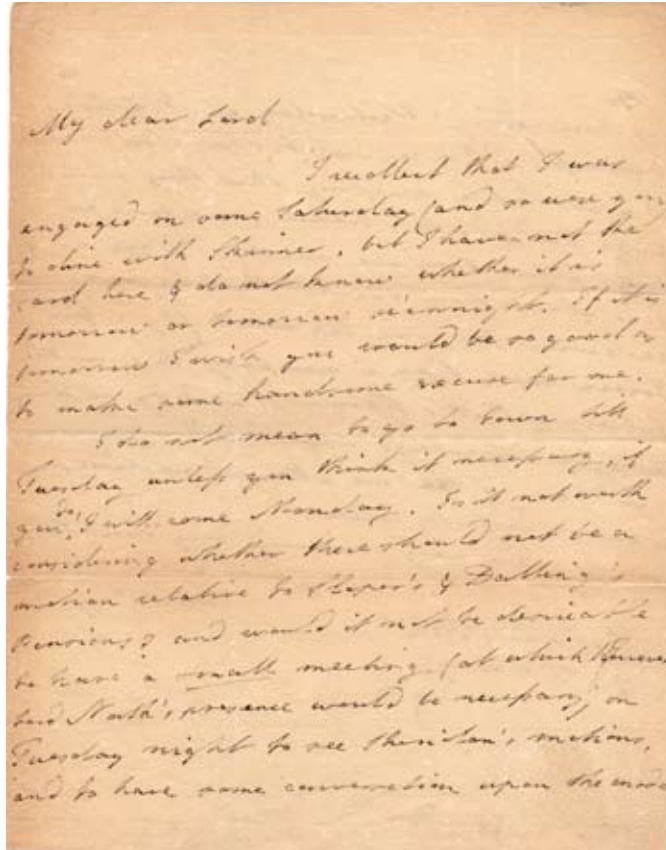 My dear Lord
I recollect that I was
engaged on some Saturday (and so were you
to dine with Skinner, but I have not the
card here & do not know whether it is
tomorrow or tomorrow se'ennight. If it is
tomorrow I wish you would be so good as
to make some handsome excuse for me.
I do not mean to go to town till
Tuesday unless you think it necessary, if
you do, I will come Monday. Is it not worth
considering whether there should not be a
motion relative to & Dalling's
Pensions, and would it not be desirable
to have a small meeting (at which however
Lord North's presence would be necessary) on
Tuesday night to see Sheridan's motions,
and to have some conversation upon the mode